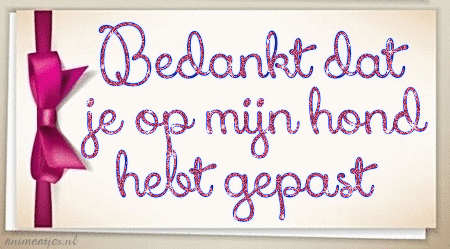 Bedankt dat
je op mijn hond
hebt gepast
animaatjes.nl